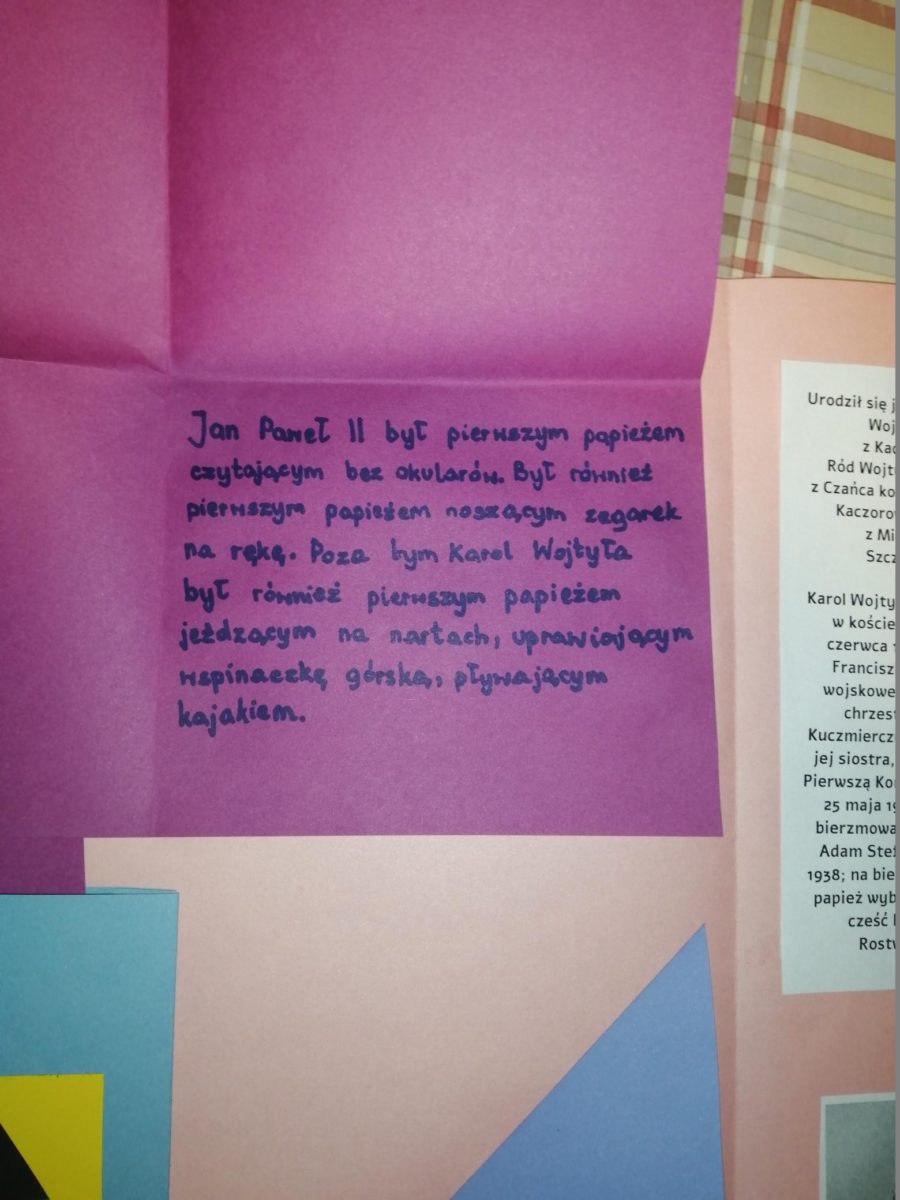 Jan Paweł II był pierwszym papieżem
czytającym bez okularów. Był również
pierwszym papieżem noszącym zegarek
na rękę. Poza tym Karol Wojtyła
był również pierwszym papieżem
jeżdzącym na nartach, uprawiającym
wspinaczkę górską, pływającym
kajakiem.
Urodził się j
Woj
z Kac
Ród Wojty
z Czańca ko
Kaczorow
z Mi
Szcz
Karol Wojty
w koście
czerwca 1
Francisz
wojskowe
chrzest
Kuczmiercz
jej siostra,
Pierwszą Ko
25 maja 19
bierzmowa
Adam Stef
1938; na bie
papież wyb
cześć
Rostw